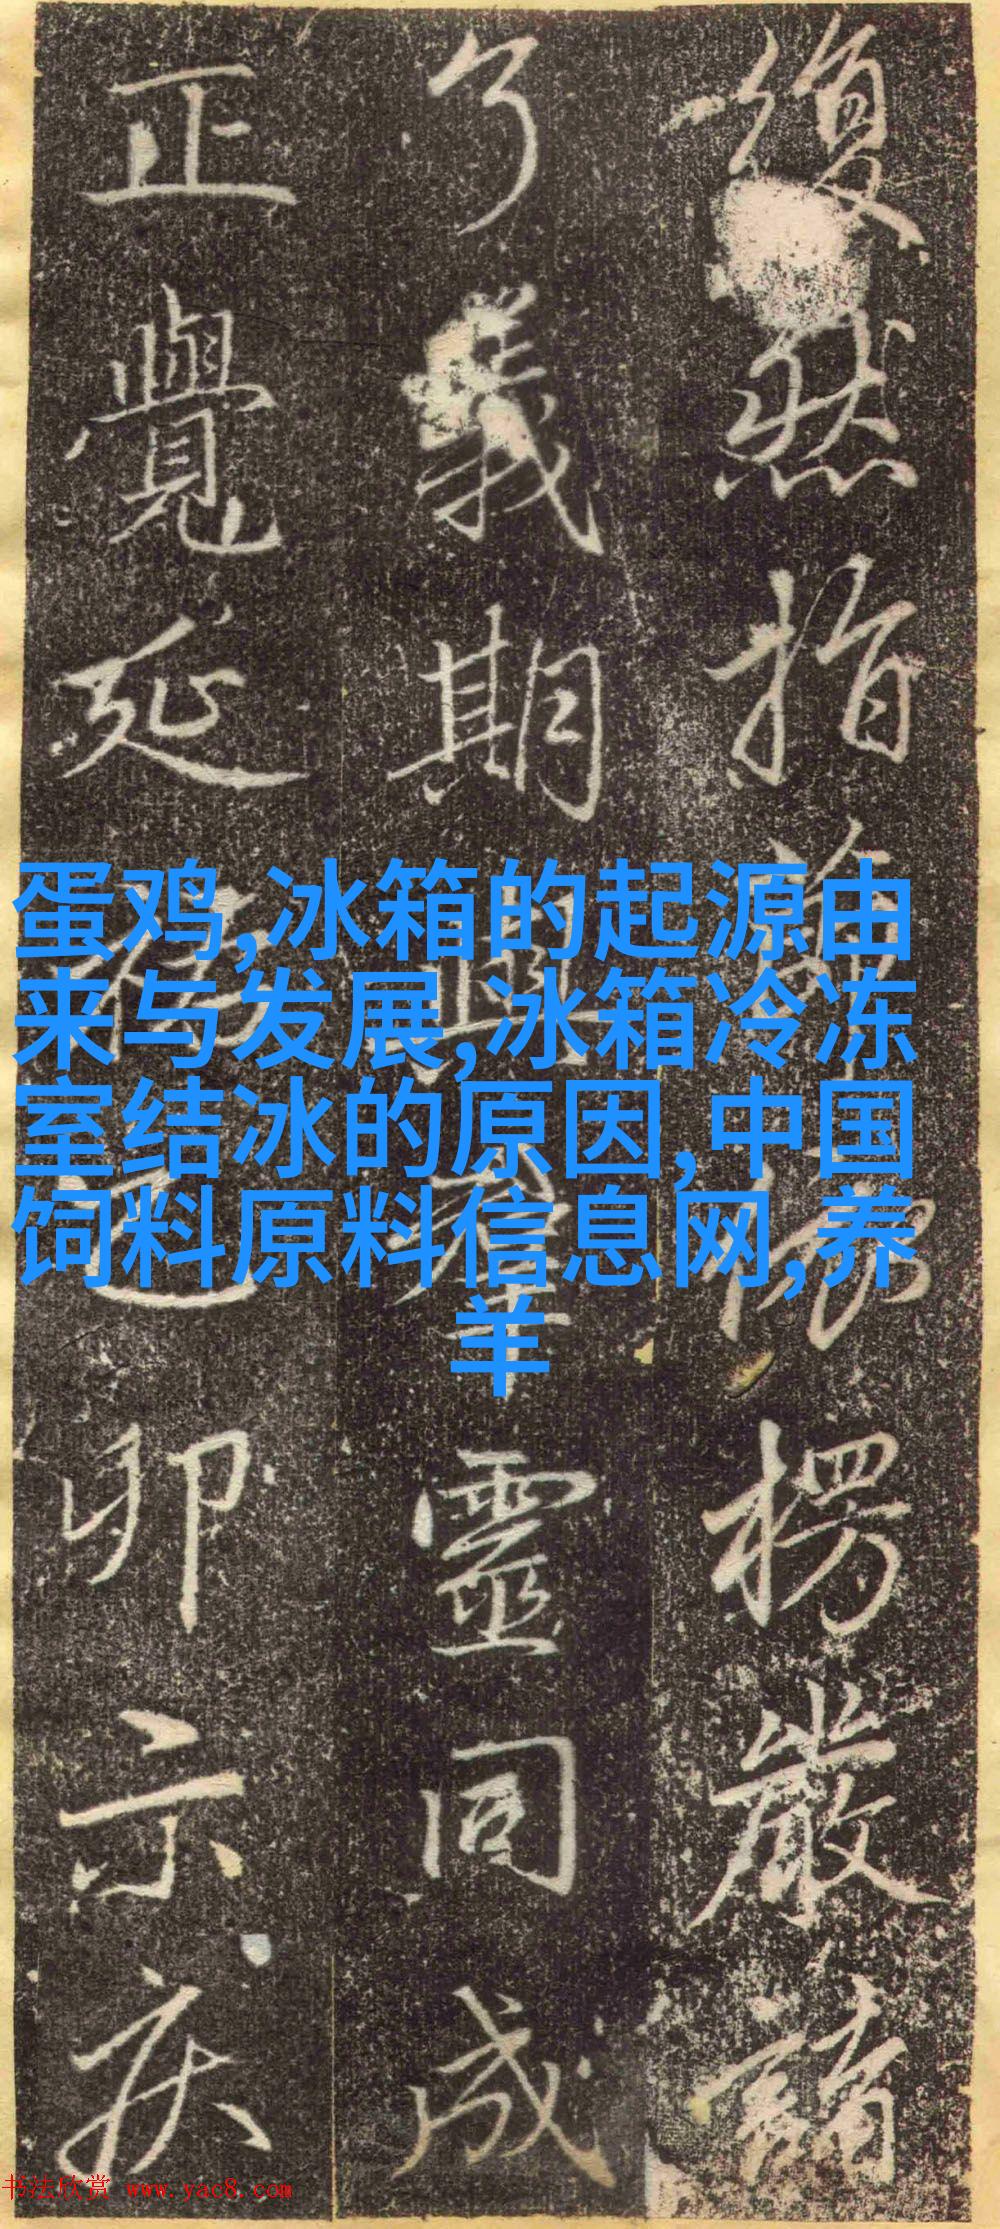 復然指楞嚴請
了義期與羣靈同成
正覺延卯示疾
蛋鸡,冰箱的起源由
来与发展,冰箱冷冻
室结冰的原因,中国
饲料原料信息网,养
羊
书法欣赏 www.yac8.com